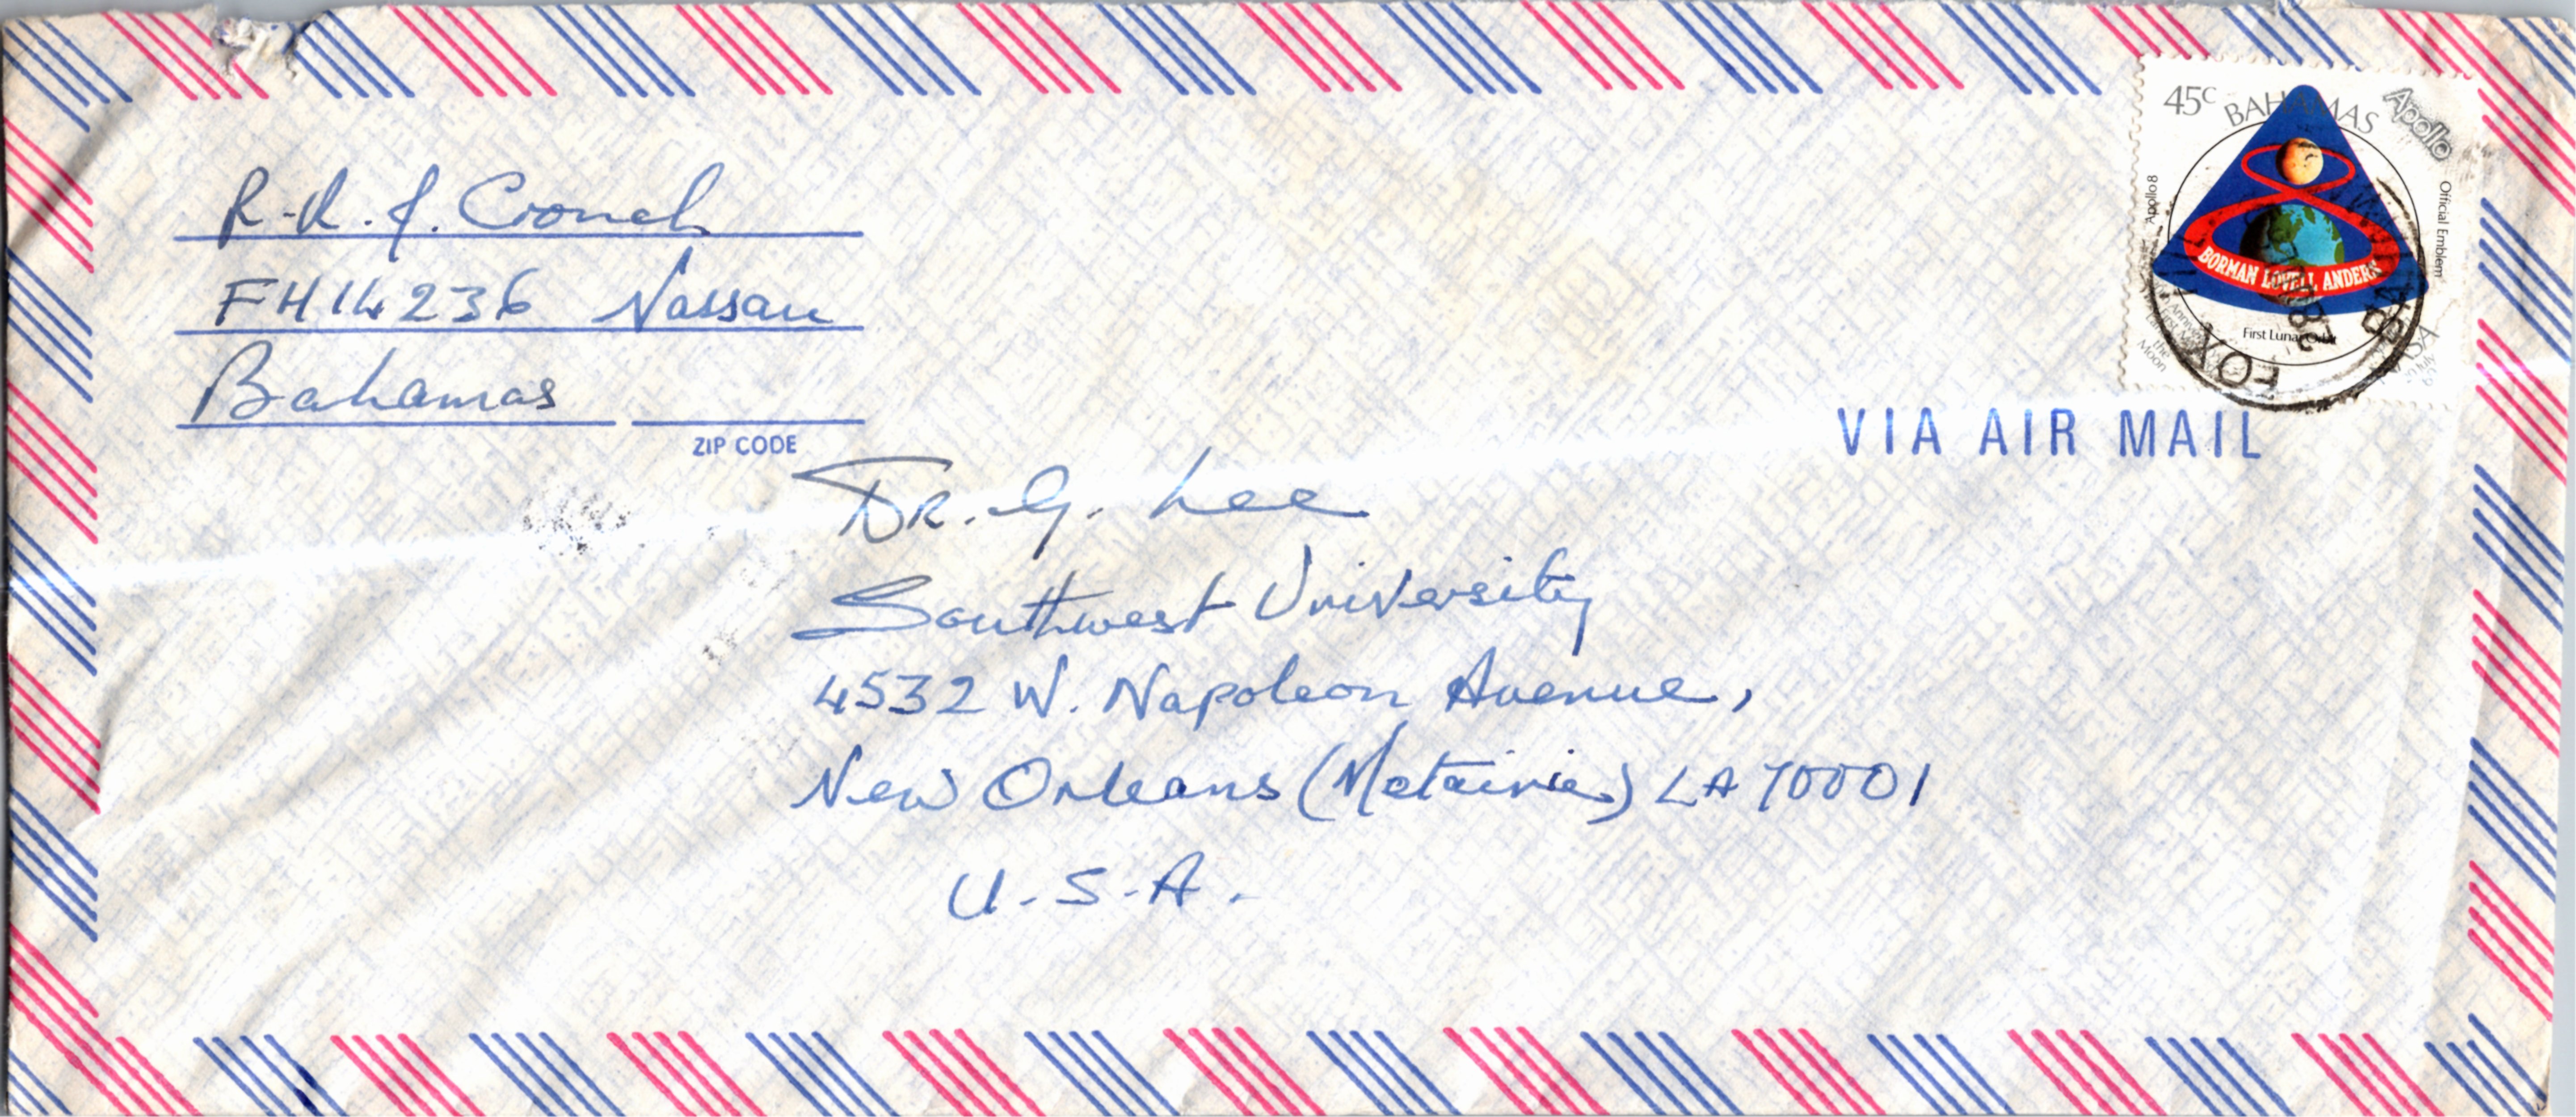 R-K. J. Crouch
FH14236 Nassau
Bahamas
ZIP CODE
45c BAHAMAS
Apollo
Apollo 8
Official Emblem
BORMAN LOVELL ANDERS
First Lunar Orbit
the
Moon
NASA
20 July
FOX
VIA AIR MAIL
DR. G. Lee
Southwest University
4532 W. Napoleon Avenue,
New Orleans (Metairie) LA 70001
U.S.A.